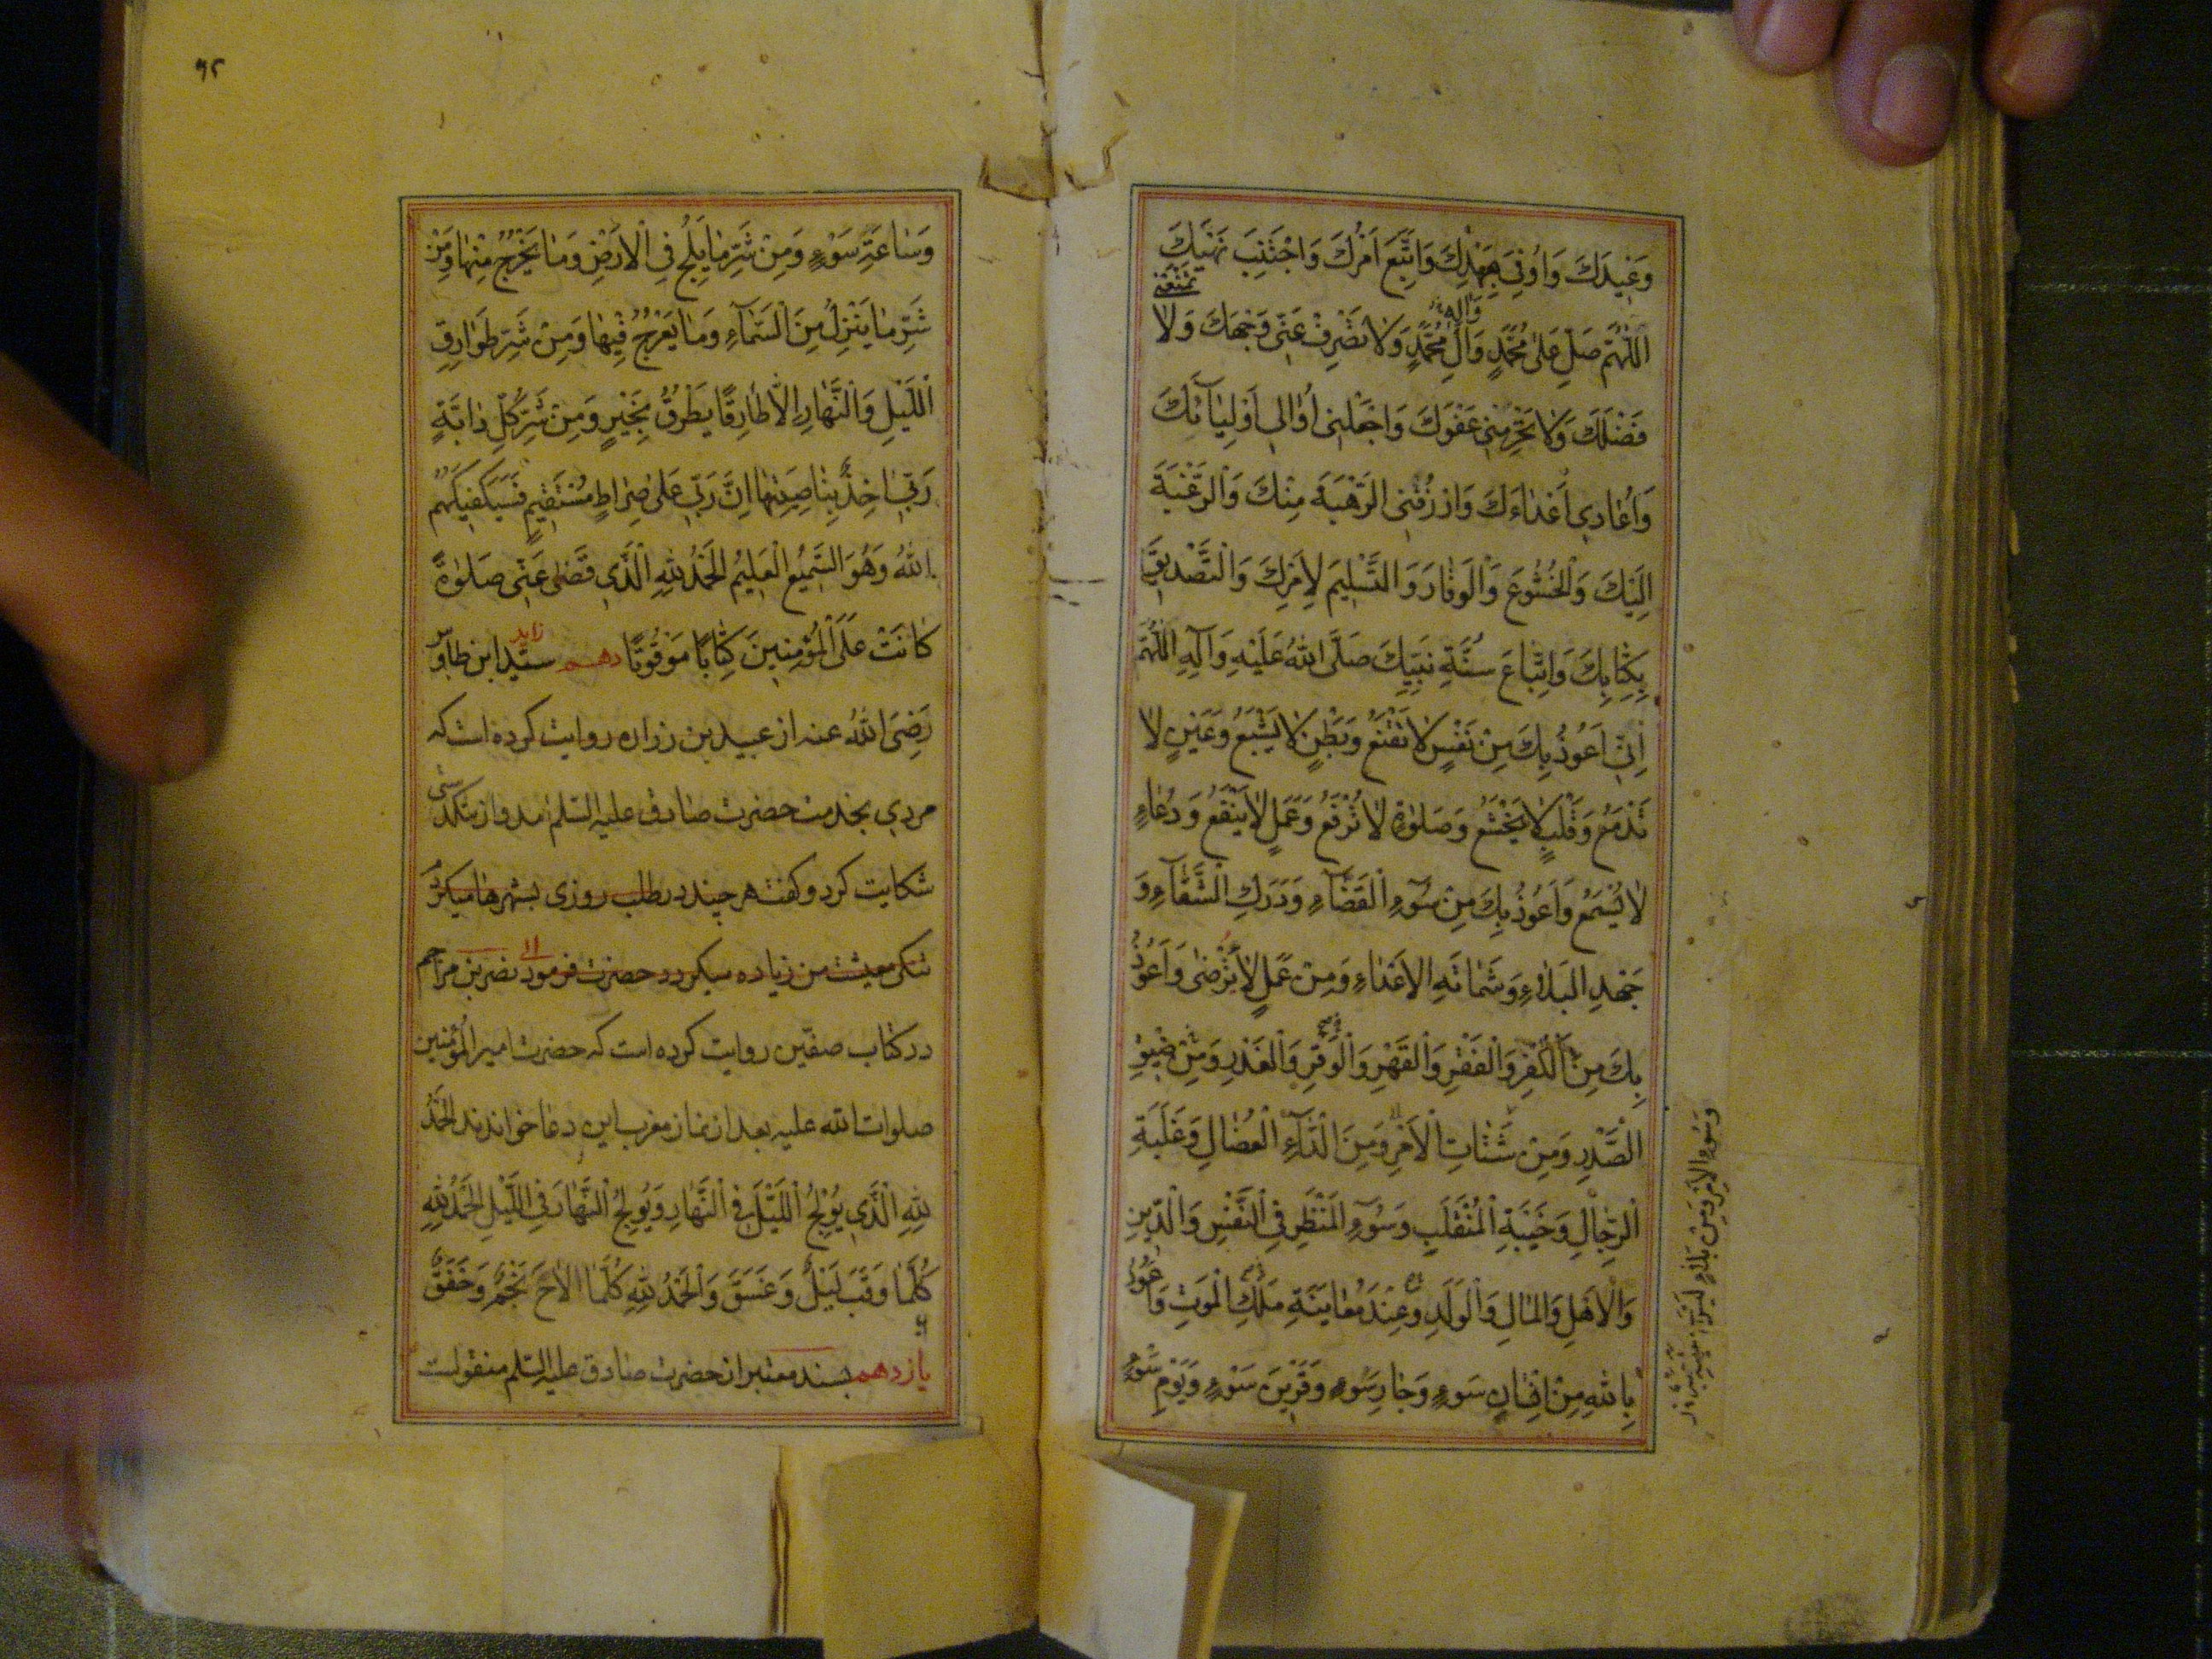 وَعِيدَكَ وَاُوفِيَ بِعَهْدِكَ وَاَتَّبِعَ اَمْرَكَ وَاَجْتَنِبَ نَهْيَكَ
اَللّٰهُمَّ صَلِّ عَلٰى مُحَمَّدٍ وَآلِ مُحَمَّدٍ وَلَا تَصْرِفْ عَنّى وَجْهَكَ وَلَا تَمْنَعْنى
فَضْلَكَ وَلَا تَحْرِمْنى عَفْوَكَ وَاجْعَلْنى اُوَالى اَوْلِيَآئَكَ
وَاُعَادى اَعْدَاءَكَ وَارْزُقْنى الرَّهْبَةَ مِنْكَ وَالرَّغْبَةَ
اِلَيْكَ وَالْخُشُوعَ وَالْوَقَارَ وَالتَّسْلِيمَ لِاَمْرِكَ وَالتَّصْدِيقَ
بِكِتَابِكَ وَاتِّبَاعَ سُنَّةِ نَبِيِّكَ صَلَّى اللهُ عَلَيْهِ وَآلِهِ اَللّٰهُمَّ
اِنّى اَعُوذُ بِكَ مِنْ نَفْسٍ لَا تَقْنَعُ وَبَطْنٍ لَا يَشْبَعُ وَعَيْنٍ لَا
تَدْمَعُ وَقَلْبٍ لَا يَخْشَعُ وَصَلٰوةٍ لَا تُرْفَعُ وَعَمَلٍ لَا يَنْفَعُ وَدُعَاءٍ
لَا يُسْمَعُ وَاَعُوذُ بِكَ مِنْ سُوٓءِ الْقَضَآءِ وَدَرَكِ الشَّقَآءِ وَ
جَهْدِ الْبَلَاءِ وَشَمَاتَةِ الْاَعْدَاءِ وَمِنْ عَمَلٍ لَا يُرْضٰى وَاَعُوذُ
بِكَ مِنَ الْكُفْرِ وَالْفَقْرِ وَالْقَهْرِ وَالْوَقْرِ وَالْغَدْرِ وَمِنْ ضيقِ
الصَّدْرِ وَمِنْ شَتَاتِ الْاَمْرِ وَمِنَ الدَّآءِ الْعُضَالِ وَغَلَبَةِ
الرِّجَالِ وَخَيْبَةِ الْمُنْقَلَبِ وَسُوٓءِ الْمَنْظَرِ فِى النَّفْسِ وَالدّينِ
وَالْاَهْلِ وَالْمَالِ وَالْوَلَدِ وَعِنْدَ مُعَايَنَةِ مَلَكِ الْمَوْتِ وَاَعُوذُ
بِاللهِ مِنْ اِنْسَانِ سَوْءٍ وَجَارِ سَوْءٍ وَقَرينِ سَوْءٍ وَيَوْمِ سَوْءٍ
وَسُوءِ الْاَمْرِ وَمِنْ بَلَاءٍ
۹۲
وَسَاعَةِ سَوْءٍ وَمِنْ شَرِّ مَا يَلِجُ فِى الْاَرْضِ وَمَا يَخْرُجُ مِنْهَا وَمِنْ
شَرِّ مَا يَنْزِلُ مِنَ السَّمَآءِ وَمَا يَعْرُجُ فيهَا وَمِنْ شَرِّ طَوَارِقِ
اللَّيْلِ وَالنَّهَارِ اِلَّا طَارِقًا يَطْرُقُ بِخَيْرٍ وَمِنْ شَرِّ كُلِّ دَابَّةٍ
رَبّى اٰخِذٌ بِنَاصِيَتِهَا اِنَّ رَبّى عَلٰى صِرَاطٍ مُسْتَقيمٍ فَسَيَكْفيكَهُمُ
اللهُ وَهُوَ السَّميعُ الْعَليمُ اَلْحَمْدُ لِلّٰهِ الَّذى قَضٰى عَنّى صَلٰوةً
كَانَتْ عَلَى الْمُؤْمِنينَ كِتَابًا مَوْقُوتًا دهم سيّد ابن طاوس
رَضِىَ اللهُ عنه از عبيد بن زراره روايت كرده است كه
مردى بخدمت حضرت صادق عليه السّلم آمد و از تنكدستى
شكايت كرد و كفت هر چند در طلب روزى بشهرها ميكردم
تنكى معيشت من زياده ميكردد حضرت فرمود نصر بن مزاحم
در كتاب صفّين روايت كرده است كه حضرت امير المؤمنين
صلوات الله عليه بعد از نماز مغرب اين دعا خواندند الْحَمْدُ
لِلّٰهِ الَّذى يُولِجُ اللَّيْلَ فِى النَّهَارِ وَيُولِجُ النَّهَارَ فِى اللَّيْلِ الْحَمْدُ لِلّٰهِ
كُلَّمَا وَقَبَ لَيْلٌ وَغَسَقَ وَالْحَمْدُ لِلّٰهِ كُلَّمَا لَاحَ نَجْمٌ وَخَفَقَ
يازدهم بسند معتبر از حضرت صادق عليه السّلم منقولست